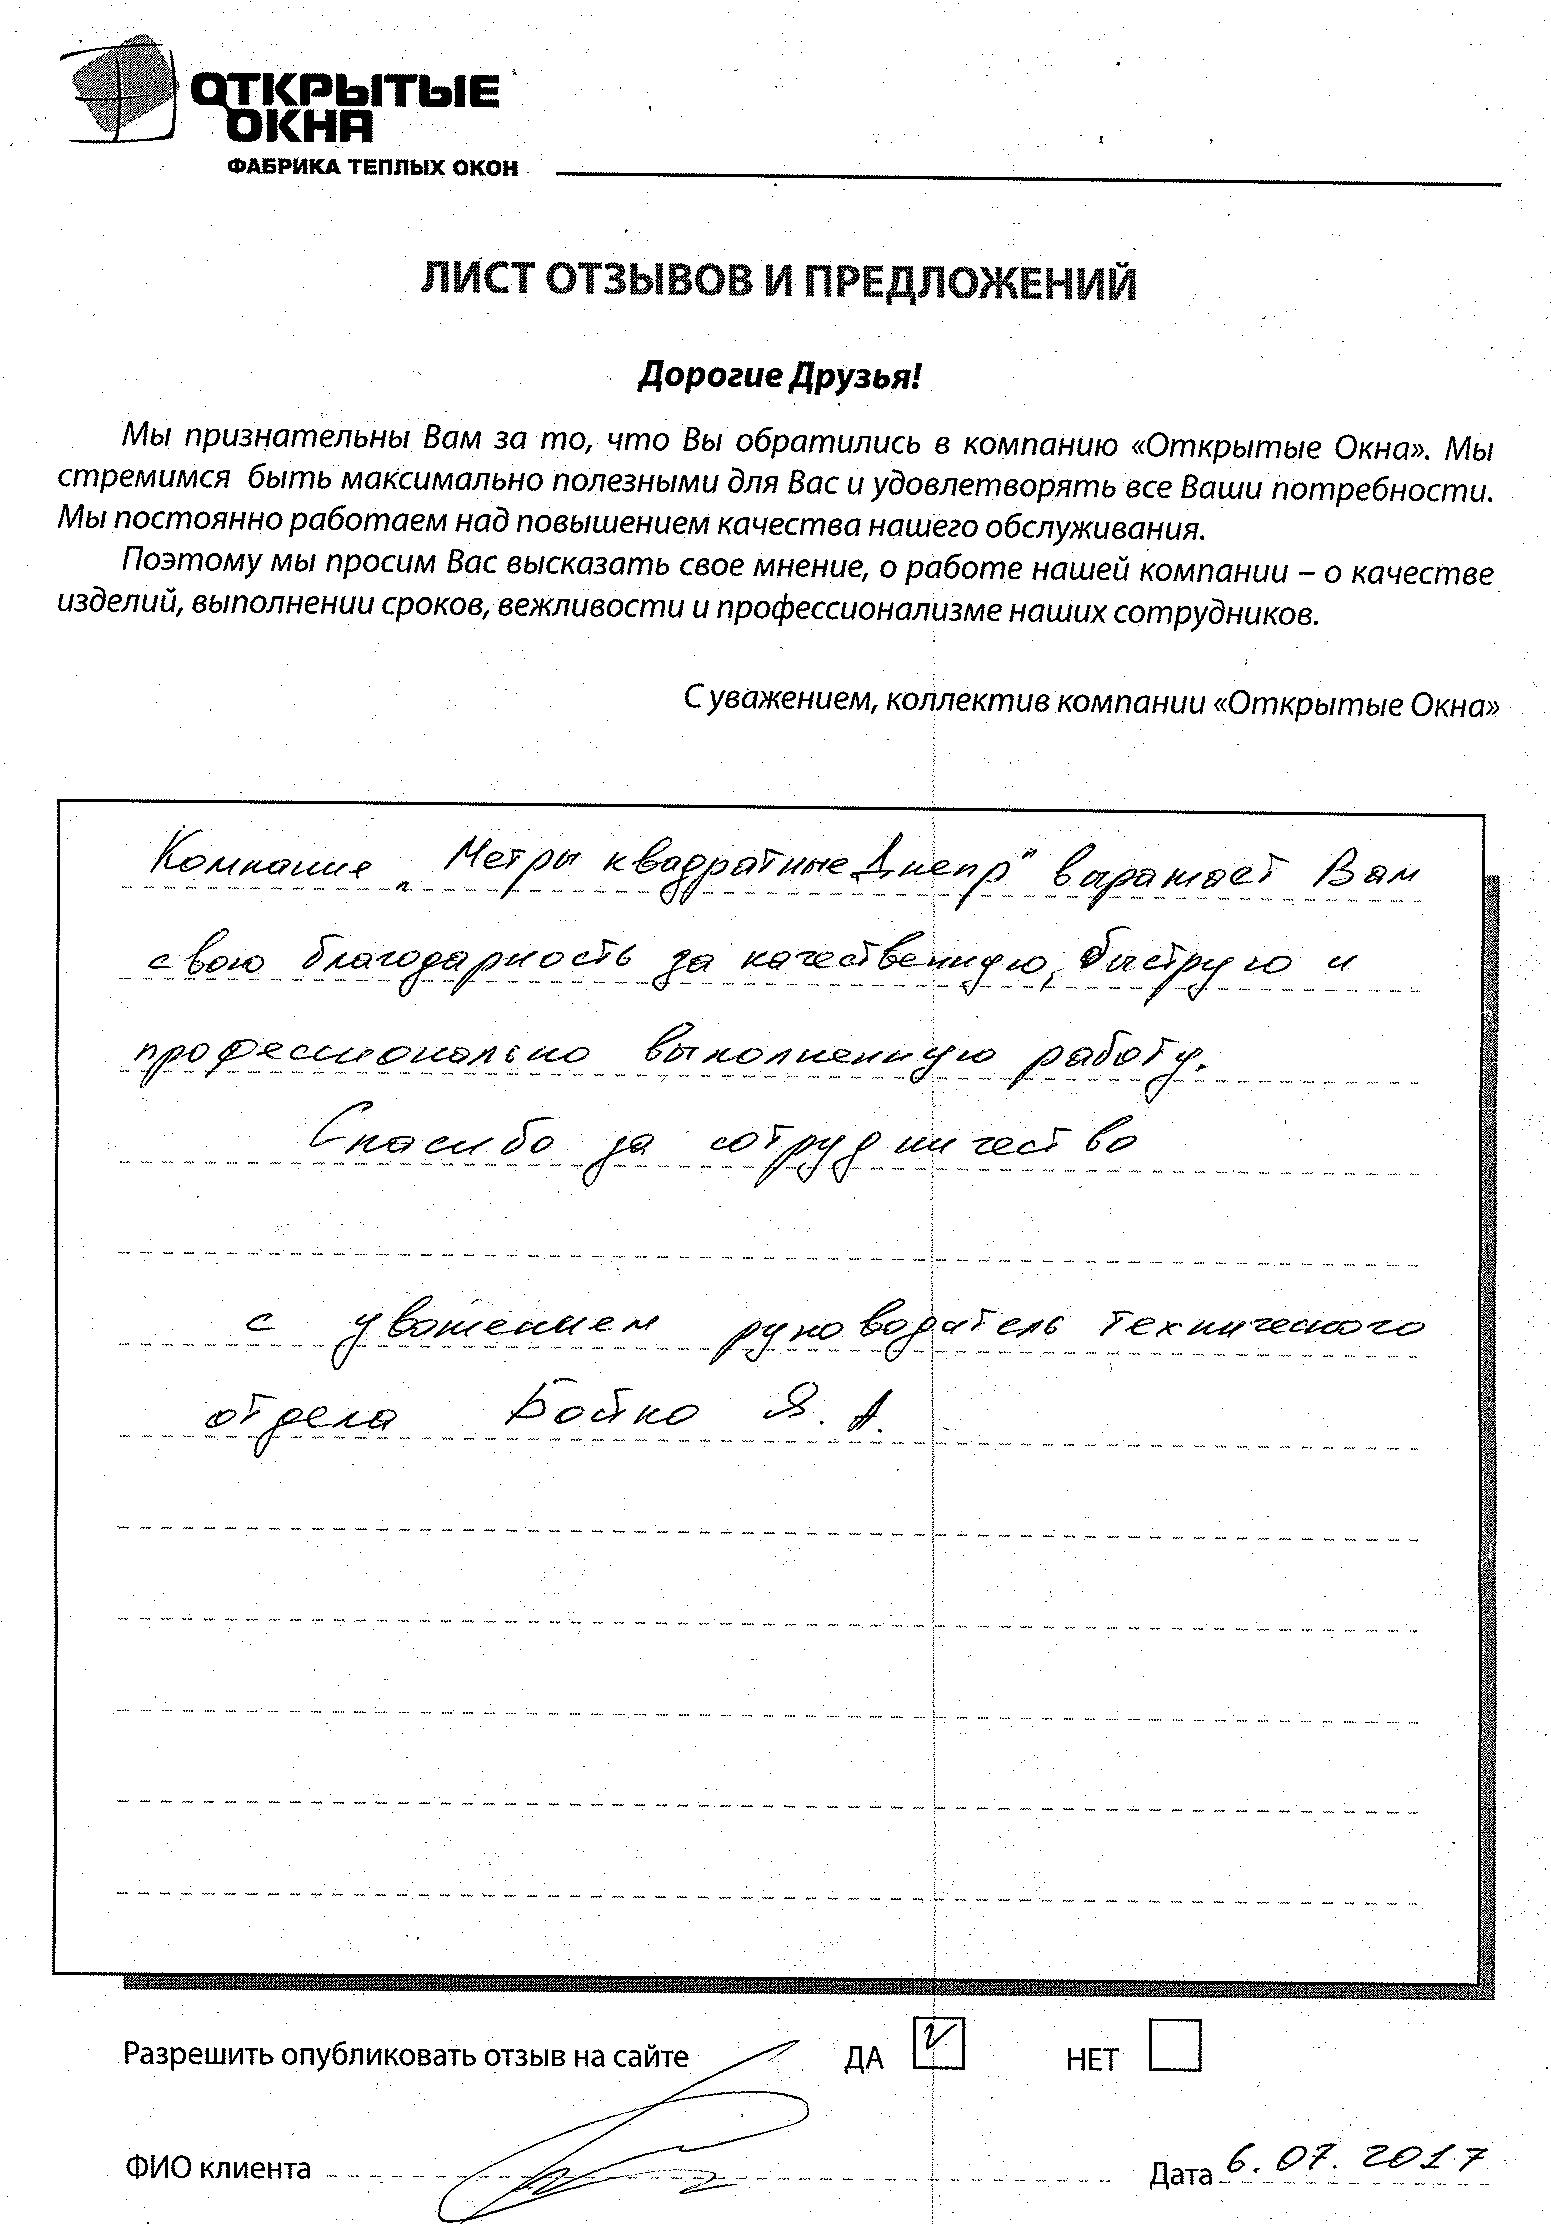 ОТКРЫТЫЕ
ОКНА
ФАБРИКА ТЕПЛЫХ ОКОН
ЛИСТ ОТЗЫВОВ И ПРЕДЛОЖЕНИЙ
Дорогие Друзья!
Мы признательны Вам за то, что Вы обратились в компанию «Открытые Окна». Мы
стремимся быть максимально полезными для Вас и удовлетворять все Ваши потребности.
Мы постоянно работаем над повышением качества нашего обслуживания.
Поэтому мы просим Вас высказать свое мнение, о работе нашей компании – о качестве
изделий, выполнении сроков, вежливости и профессионализме наших сотрудников.
С уважением, коллектив компании «Открытые Окна»
Компание „Метры квадратные Днепр" выражает Вам
свою благодарность за качественную, быструю и
профессионально выполненную работу.
Спасибо за сотрудничество
с уважением руководитель технического
отдела Бойко Я. А.
Разрешить опубликовать отзыв на сайте ДА НЕТ
ФИО клиента Дата 6.07.2017